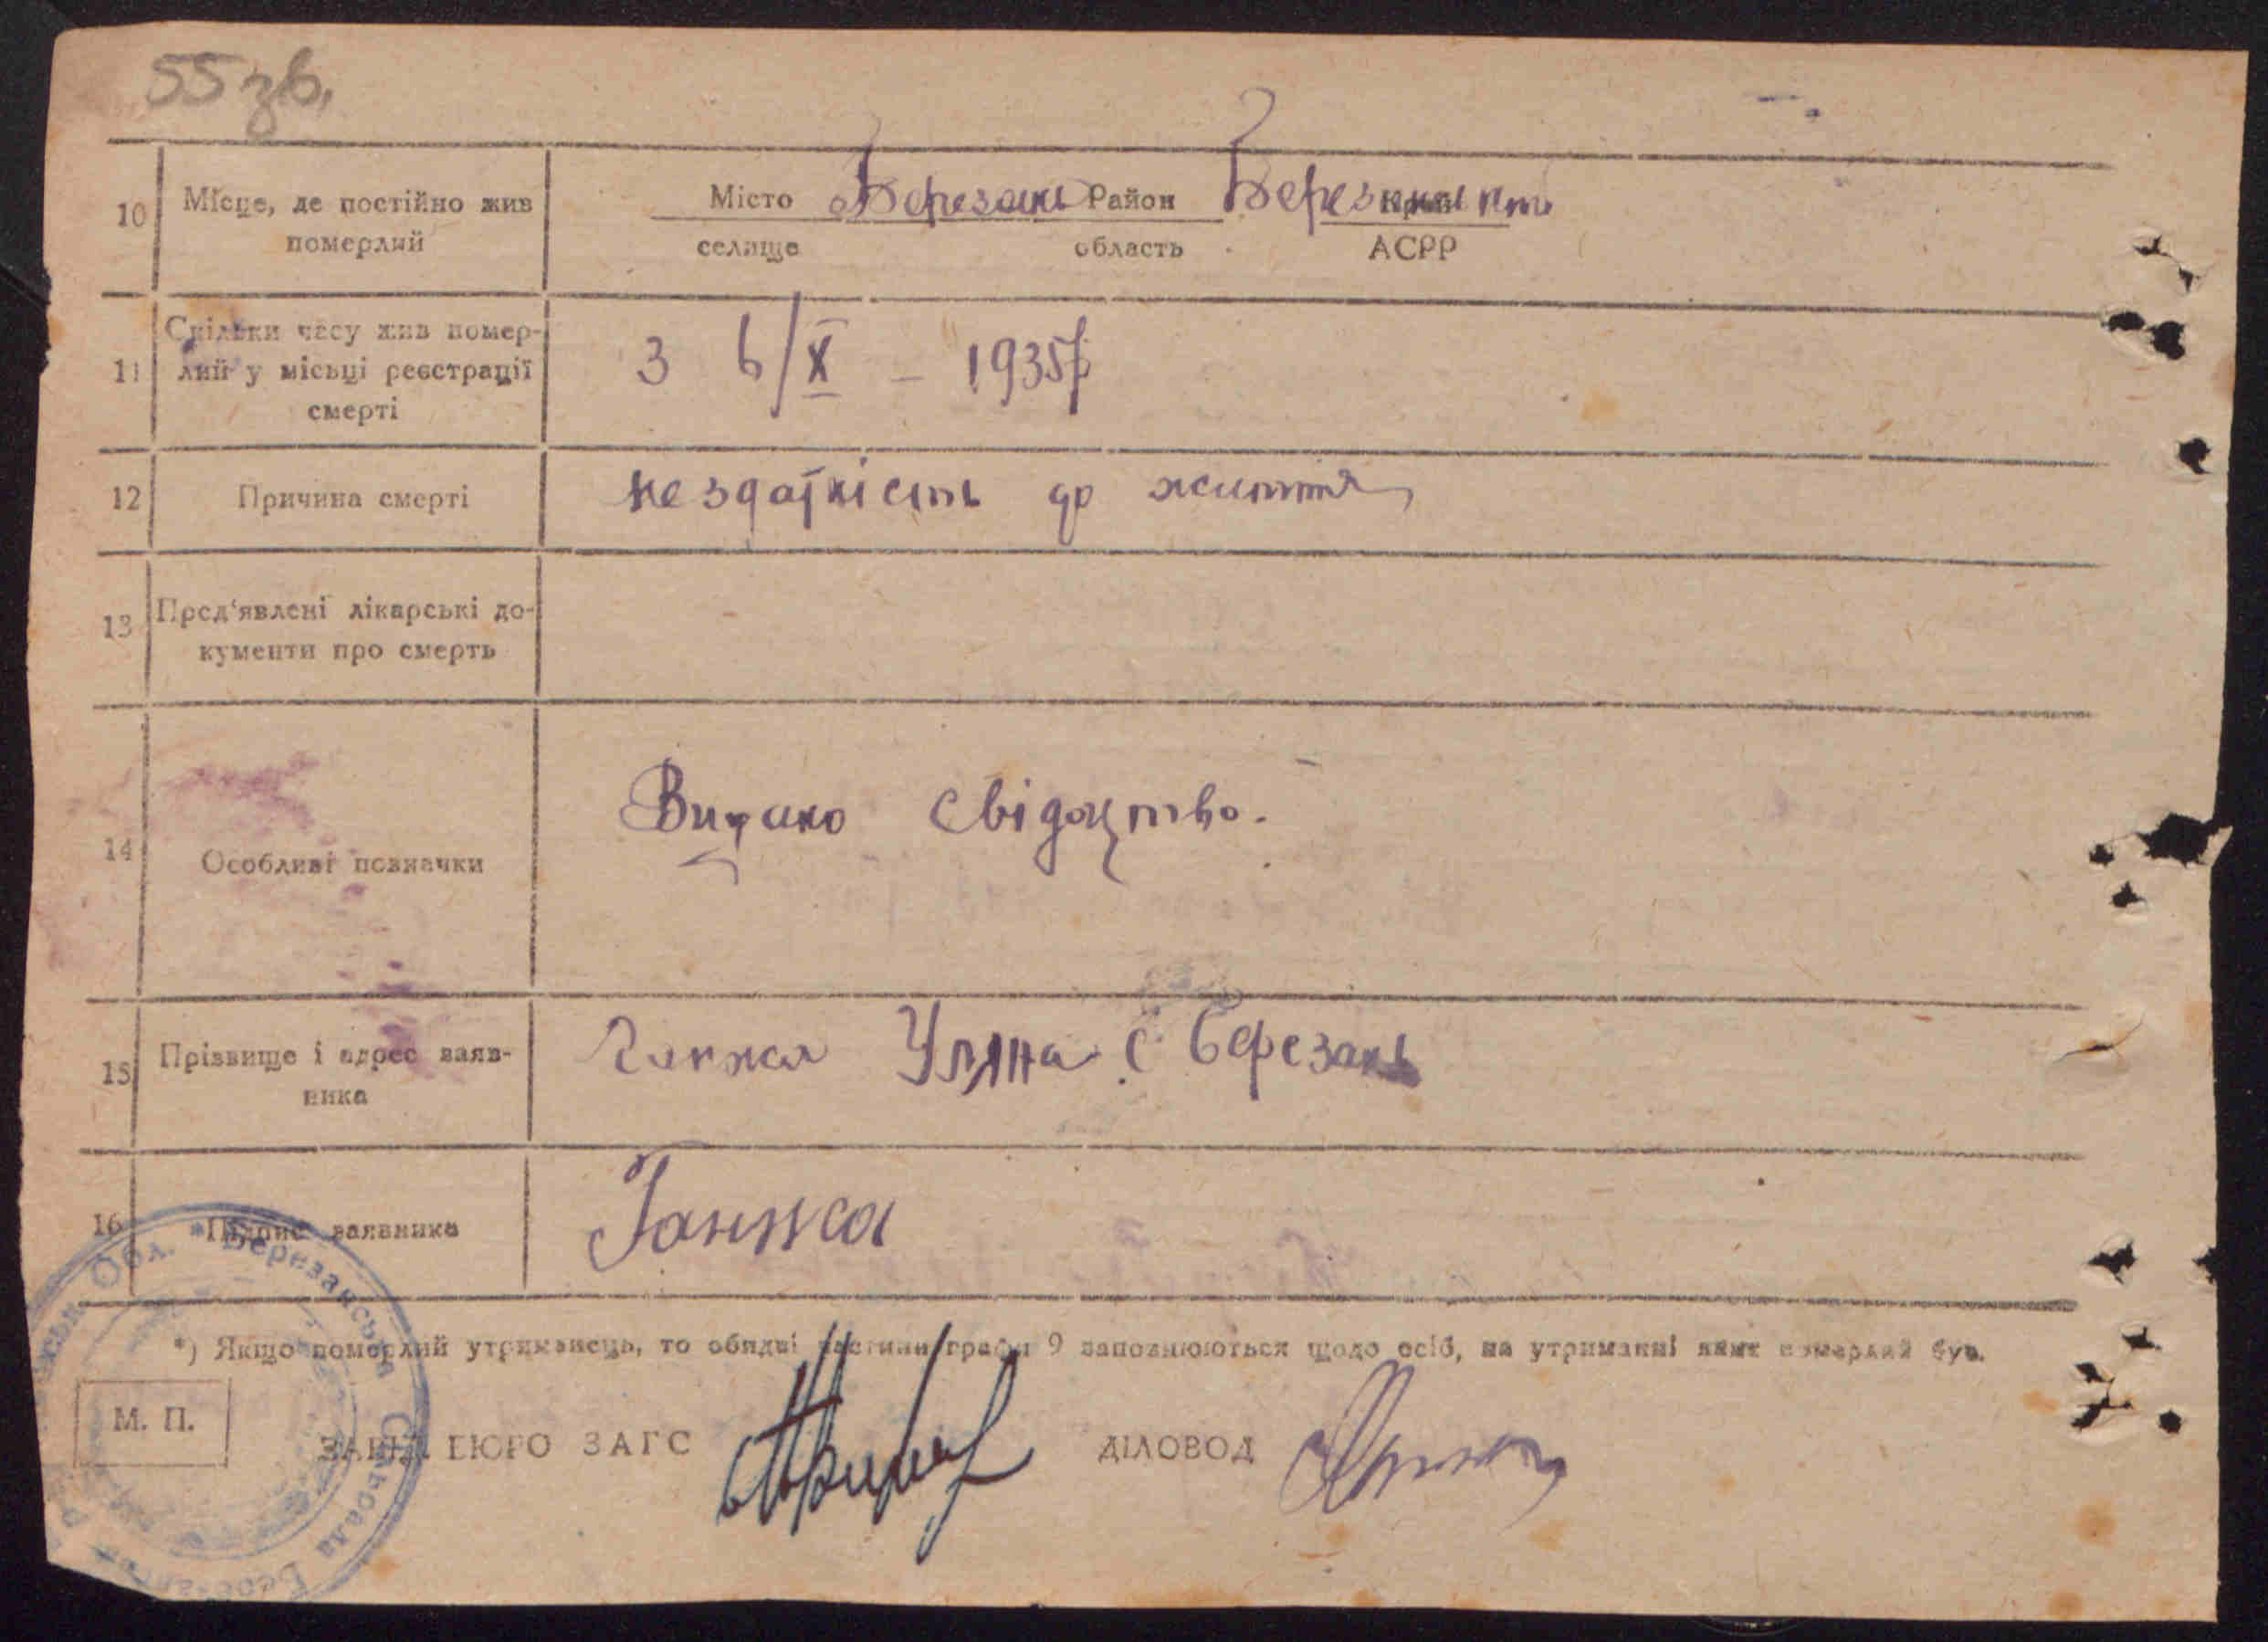 55 зв.
10 Місце, де постійно жив померлий
Місто Березань Район Край
селище область АСРР
11 Скільки часу жив помер-
лий у місьці реєстрації
смерті
З 6/X – 1935р
12 Причина смерті нездатність до життя
13 Пред'явлені лікарські до-
кументи про смерть
14 Особливі позначки
Видано свідоцтво.
15 Прізвище і адрес заяв-
ника
Уляна с Березань
16 Підпис заявника
*) Якщо померлий утриманець, то обидві частини графи 9 заповнюються щодо осіб, на утриманні яких померлий був.
М. П.
ЗАВІД. БЮРО ЗАГС ДІЛОВОД
Обл. * Березанська Сільрада